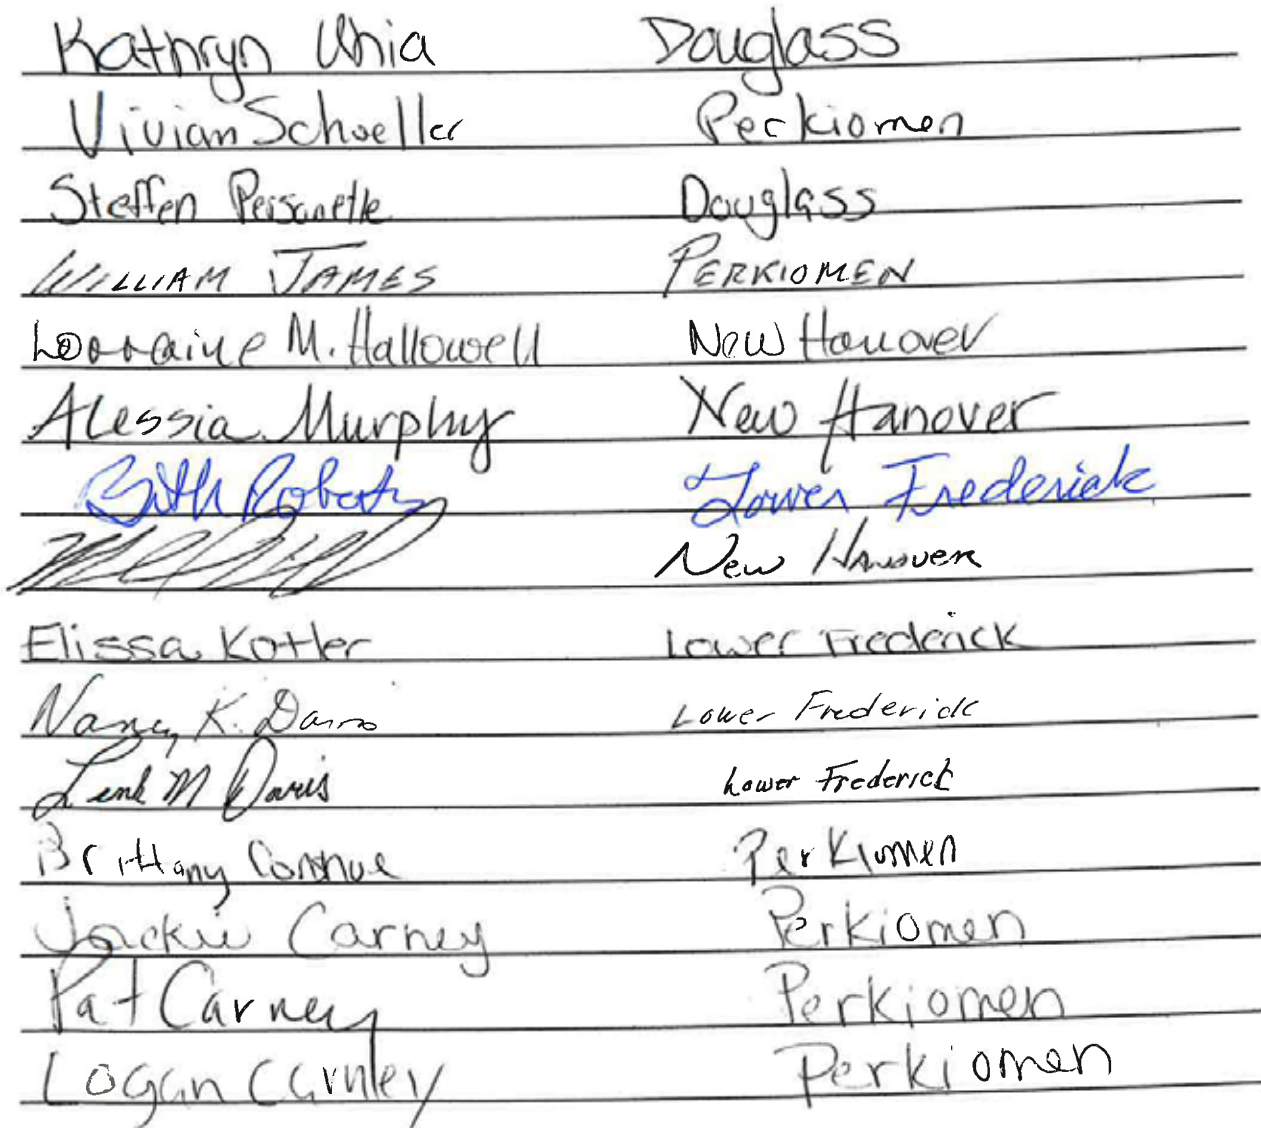 Kathryn Unia Douglass
Vivian Schoeller Perkiomen
Steffen Douglass
WILLIAM JAMES PERKIOMEN
Lorraine M. Hallowell New Hanover
Alessia Murphy New Hanover
Beth Roberts Lower Frederick
New Hanover
Elissa Kotler Lower Frederick
Nancy K. Davis Lower Frederick
M Davis Lower Frederick
Brittany Perkiomen
Jackie Carney Perkiomen
Pat Carney Perkiomen
Logan Carnley Perkiomen